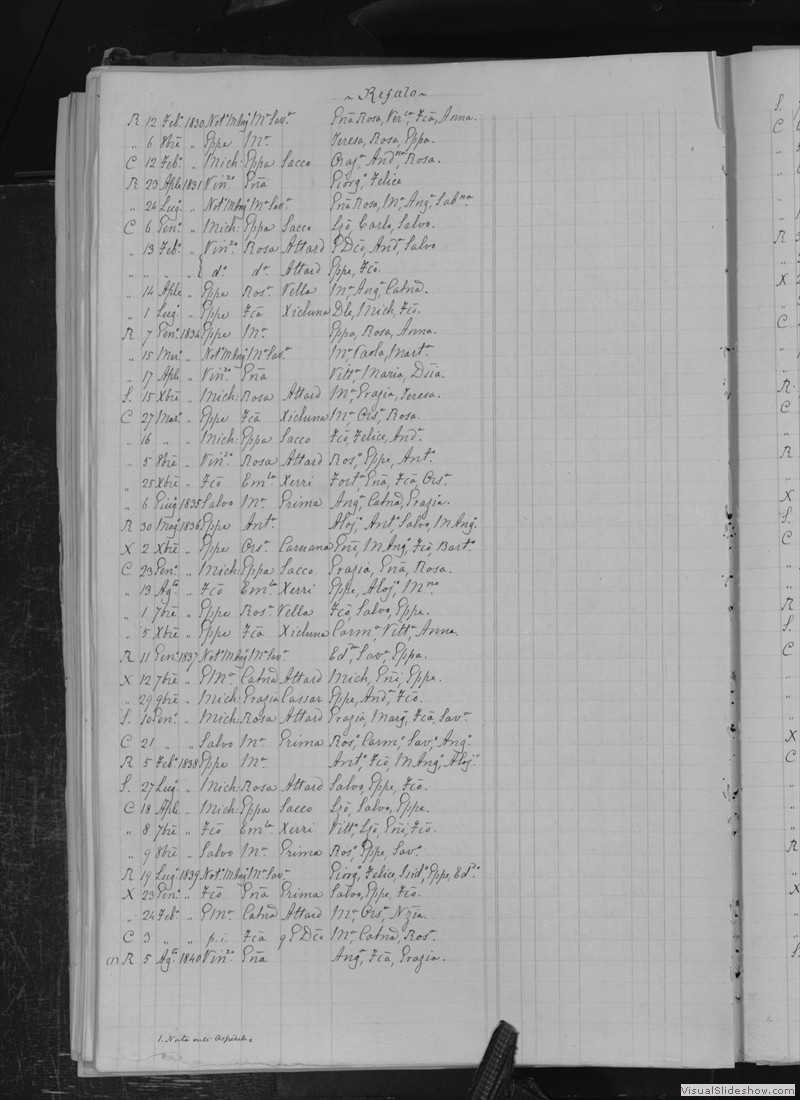 ~ Refalo ~
R 12 Feb.º 1830 Not.º M.Ang.º M.ª Sav.ª Gña Rosa, Ver.ca, Fcã, Anna.
" 6 8bre " Gppe M.ª Teresa, Rosa, Gppa.
C 12 Feb.º " Mich: Gppa Sacco Oraz.º, And.na, Rosa.
R 23 Aple 1831 Vin.zo Gña Giorg.º, Felice
" 24 Lug.º " Not.º M.Ang.º M.ª Sav.ª Gña Rosa, M.ª Ang.ª, Sab.na
C 6 Gen.º " Mich: Gppa Sacco Ljo, Carlo, Salvo.
" 13 Feb.º " Vin.zo Rosa Attard G Dco, And.ª, Salvo
" " " " d.º d.ª Attard Gppe, Fcõ.
" 14 Aple " Gppe Ros.ª Vella M.ª Ang.ª, Catnã.
" 1 Lug.º " Gppe Fcã Xicluna Dle, Mich, Fcõ.
R 7 Gen.º 1834 Gppe M.ª Gppa, Rosa, Anna.
" 15 " Not.º M.Ang.º M.ª Sav.ª M.ª Paola, Mart.ª
" 17 Aple " Vin.zo Gña Vitt.ª, Maria, Dcia.
S. 15 Xbre " Mich: Rosa Attard M.ª Grazia, Teresa.
C 27 Mar.º " Gppe Fcã Xicluna M.ª, Ors.ª, Rosa.
" 16 " " Mich: Gppa Sacco Fcõ, Felice, And.ª
" 5 8bre " Vin.zo Rosa Attard Ros.º, Gppe, Ant.º
" 25 Xbre " Fcõ Em.la Xerri Fort.ª, Gña, Fcã, Ors.ª
" 6 Giug.º 1835 Salvo M.ª Grima Ang.ª, Catnã, Grazia.
R 30 Mag.º 1836 Gppe Ant.ª Aloj.º, Ant.º, Salvo, M Ang.º
X 2 Xbre " Gppe Ors.ª Caruana Gni, M Ang.º, Fcõ, Bart.º
C 23 Gen.º " Mich: Gppa Sacco Grazia, Gña, Rosa.
" 13 Ag.to " Fcõ Em.la Xerri Gppe, Aloj.º, M.no
" 1 7bre " Gppe Ros.ª Vella Fcõ, Salvo, Gppe.
" 5 Xbre " Gppe Fcã Xicluna Carm.ª, Vitt.ª, Anna.
R 11 Gen.º 1837 Not.º M.Ang.º M.ª Sav.ª Ed.ª, Sav.ª, Gppa.
X 12 7bre " G M.ª Catnã Attard Mich, Gni, Gppe.
" 29 9bre " Mich: Grazia Cassar Gppe, And.ª, Fcõ.
S. 10 Gen.º " Mich: Rosa Attard Grazia, Marg.ª, Fcã, Sav.ª
C 21 " " Salvo M.ª Grima Ros.º, Carm.º, Sav.º, Ang.º
R 5 Feb.º 1838 Gppe M.ª Ant.º, Fcõ, M Ang.º, Aloj.º
S. 27 Lug.º " Mich: Rosa Attard Salvo, Gppe, Fcõ.
C 18 Aple " Mich: Gppa Sacco Ljo, Salvo, Gppe.
" 8 7bre " Fcõ Em.la Xerri Vitt.º, Ljo, Gni, Fcõ.
" 9 8bre " Salvo M.ª Grima Ros.º, Gppe, Sav.º
R 19 Lug.º 1839 Not.º M.Ang.º M.ª Sav.ª Giorg.º, Felice, Isid.º, Gppe, Ed.º
X 23 Gen.º " Fcõ Gña Grima Salvo, Gppe, Fcõ.
" 24 Feb.º " G M.ª Catnã Attard M.ª, Ors.ª, Nzia.
C 3 " " p.i. Fcã q G Dco M.ª, Catnã, Ros.ª
(1) R 5 Ag.to 1840 Vin.zo Gña Ang.ª, Fcã, Grazia.
1. Nata Ospedale
VisualSlideshow.com